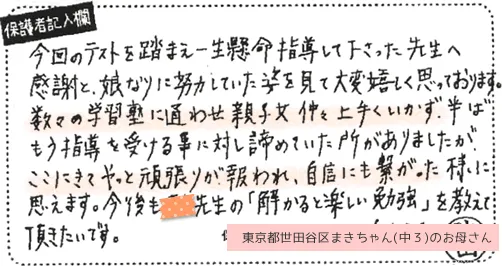 保護者記入欄
今回のテストを踏まえ一生懸命指導して下さった先生へ
感謝と、娘なりに努力していた姿を見て大変嬉しく思っております。
数々の学習塾に通わせ親子共々上手くいかず、半ば
もう指導を受ける事に対し諦めていた所がありましたが
ここにきてやっと頑張りが報われ、自信にも繋がった様に
思えます。今後も先生の「解かると楽しい勉強」を教えて
頂きたいです。
東京都世田谷区まきちゃん(中3)のお母さん